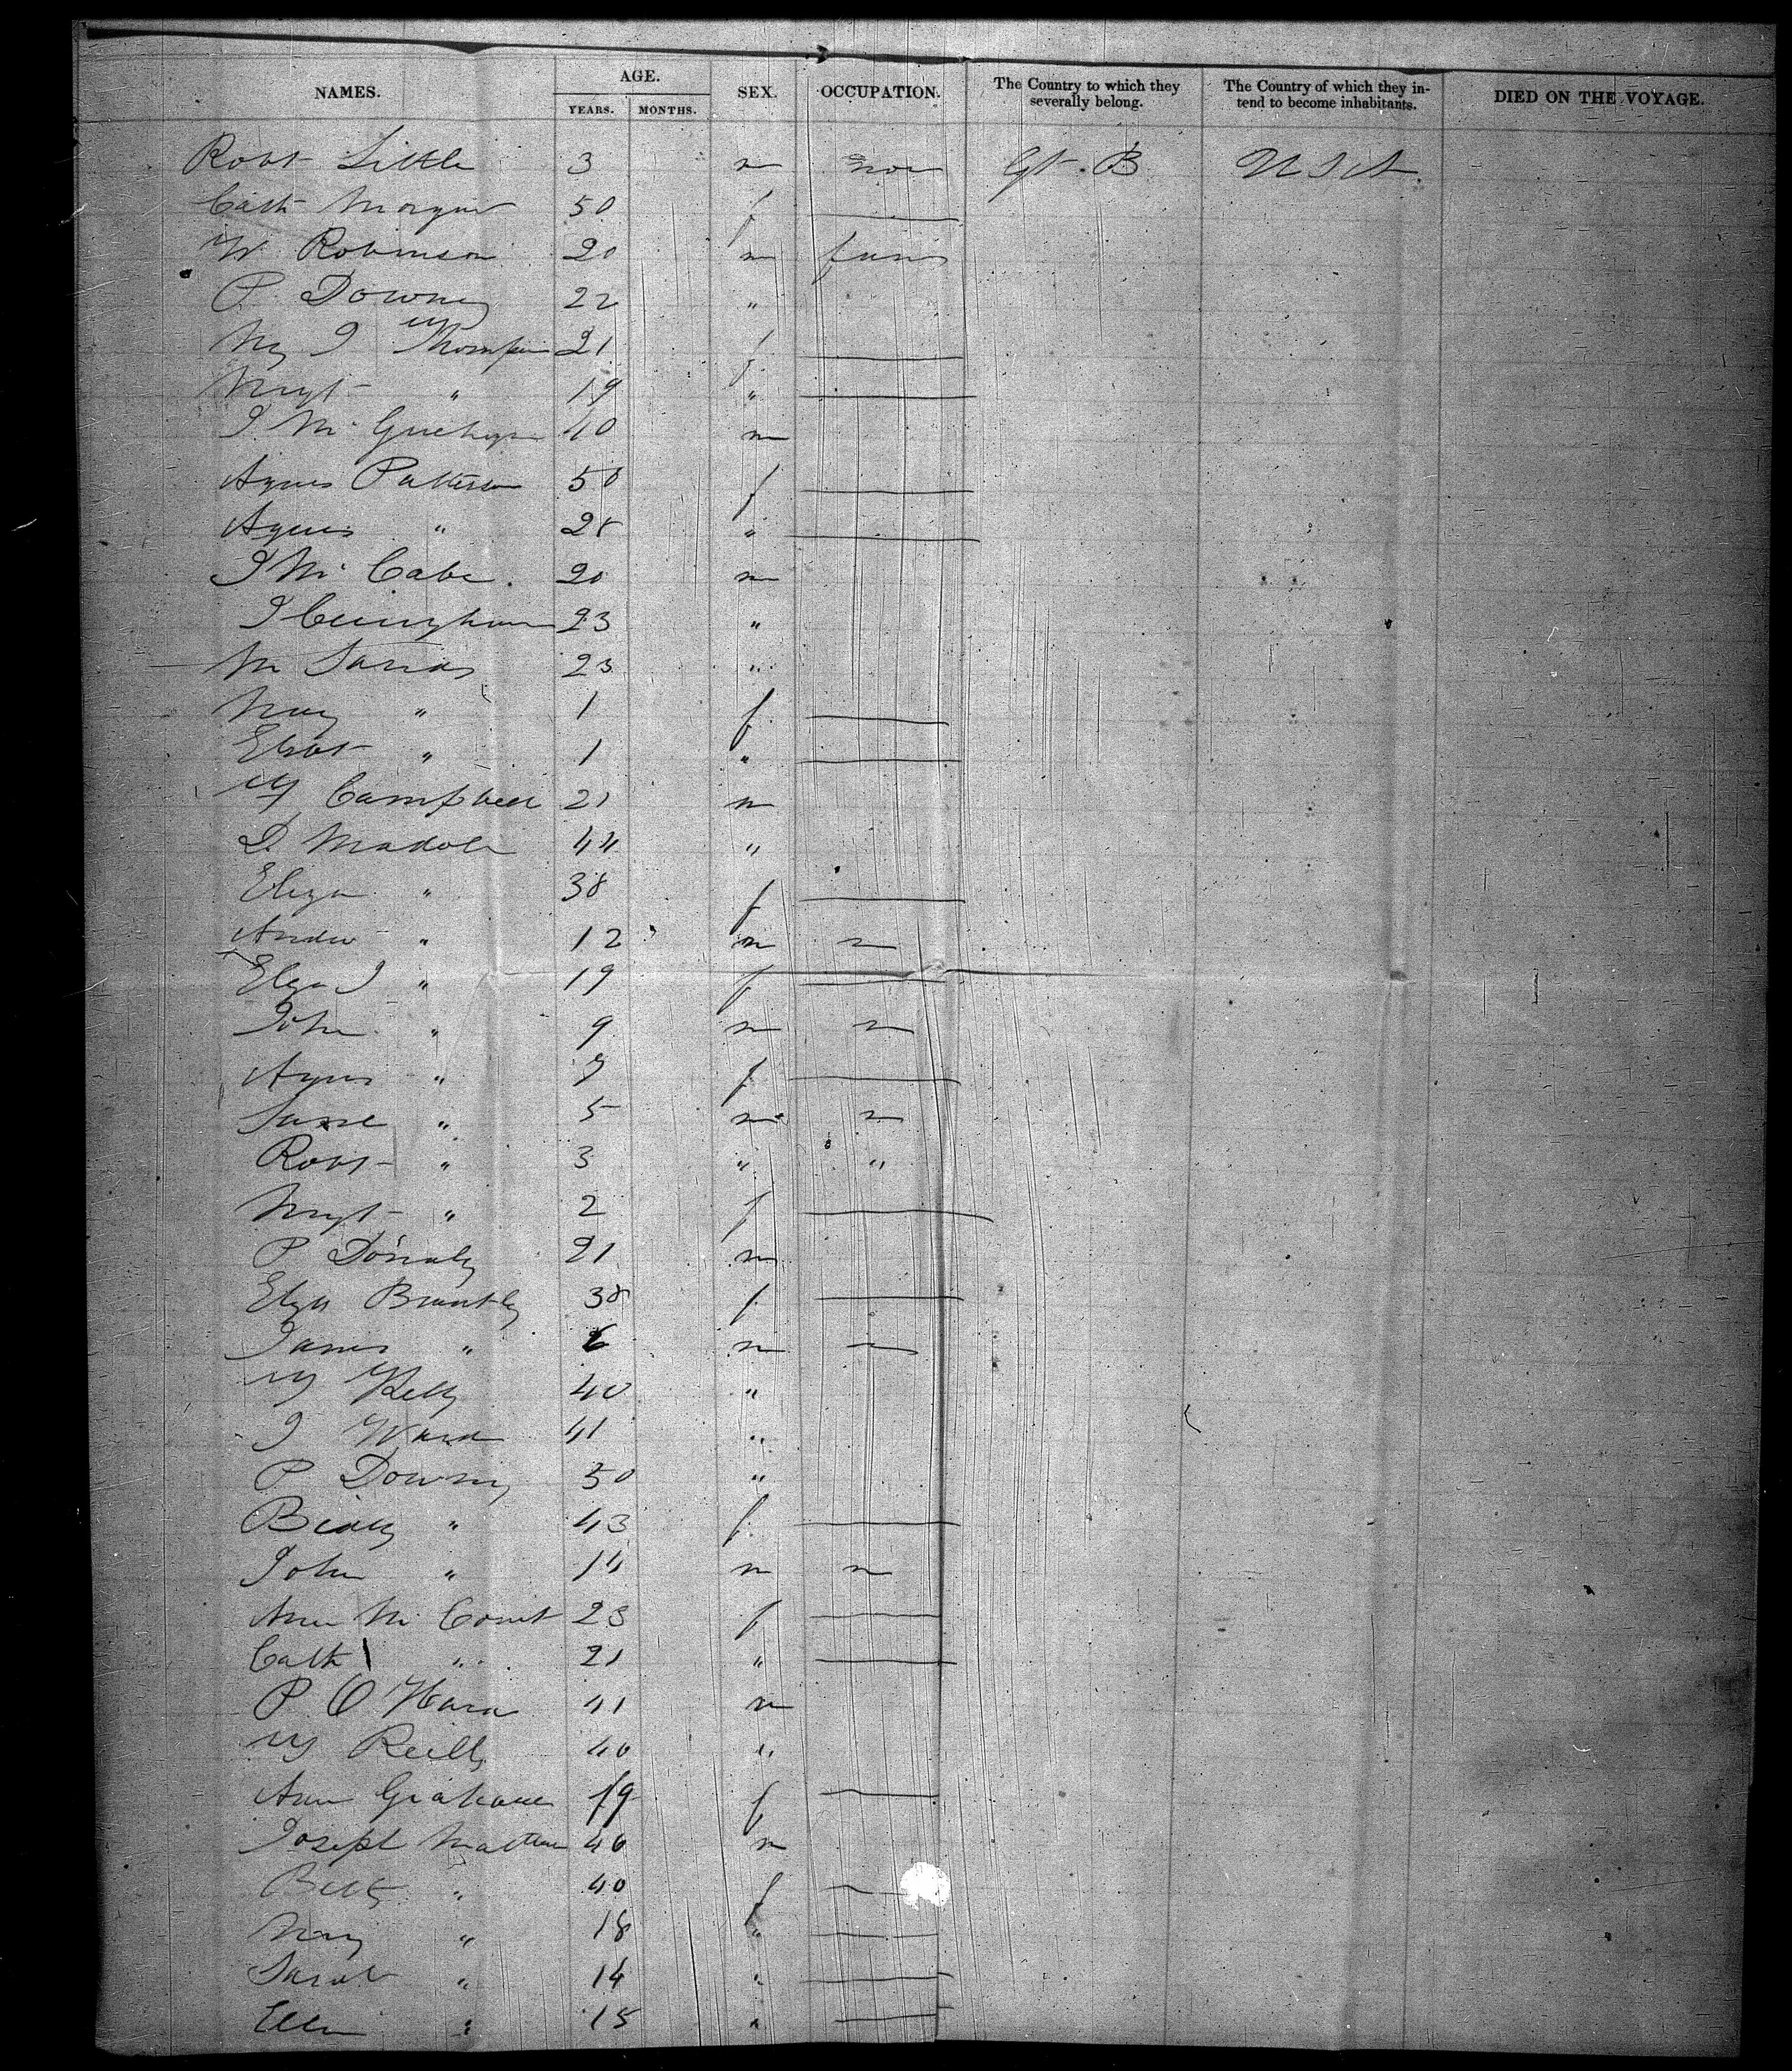 NAMES. AGE. YEARS. MONTHS. SEX. OCCUPATION. The Country to which they severally belong. The Country of which they intend to become inhabitants. DIED ON THE VOYAGE.
Robt Little 3 m non Gt. B U S A
Cath Morgan 50 f
W Robinson 20 m farm
P. Downey 22 "
My J Thompson 21 f
Mgt " 19 "
J. Mc 40 m
Agnes Patterson 50 f
Agnes " 28 "
J Mc Cabe. 20 m
J Cuningham 23 "
M 23 "
Mary " 1 f
Elizbt " 1 "
W Campbell 21 m
D. Madole 44 "
Eliza " 38 f
Andw " 12 m n
Eliza J " 19 f
John " 9 m n
Agnes " 7 f
" 5 m n
Robt " 3 " "
Mgt " 2 f
P Donaly 21 m
Eliza Brantly 38 f
James " 6 m n
W Kelly 40 "
J Ward 41 "
P Downy 50 "
" 43 f
John " 14 m n
Ann Mc Court 23 f
Cath " 21 "
P. O'Hara 41 m
W Reilly 40 "
Ann Graham 19 f
Joseph Matthew 40 m
Betty " 40 f
Mary " 18 "
Sarah " 14 "
Ellen " 15 "